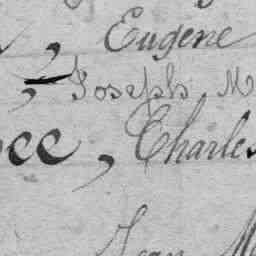 , Eugene
, Joseph M
ee, Charles
Jean M